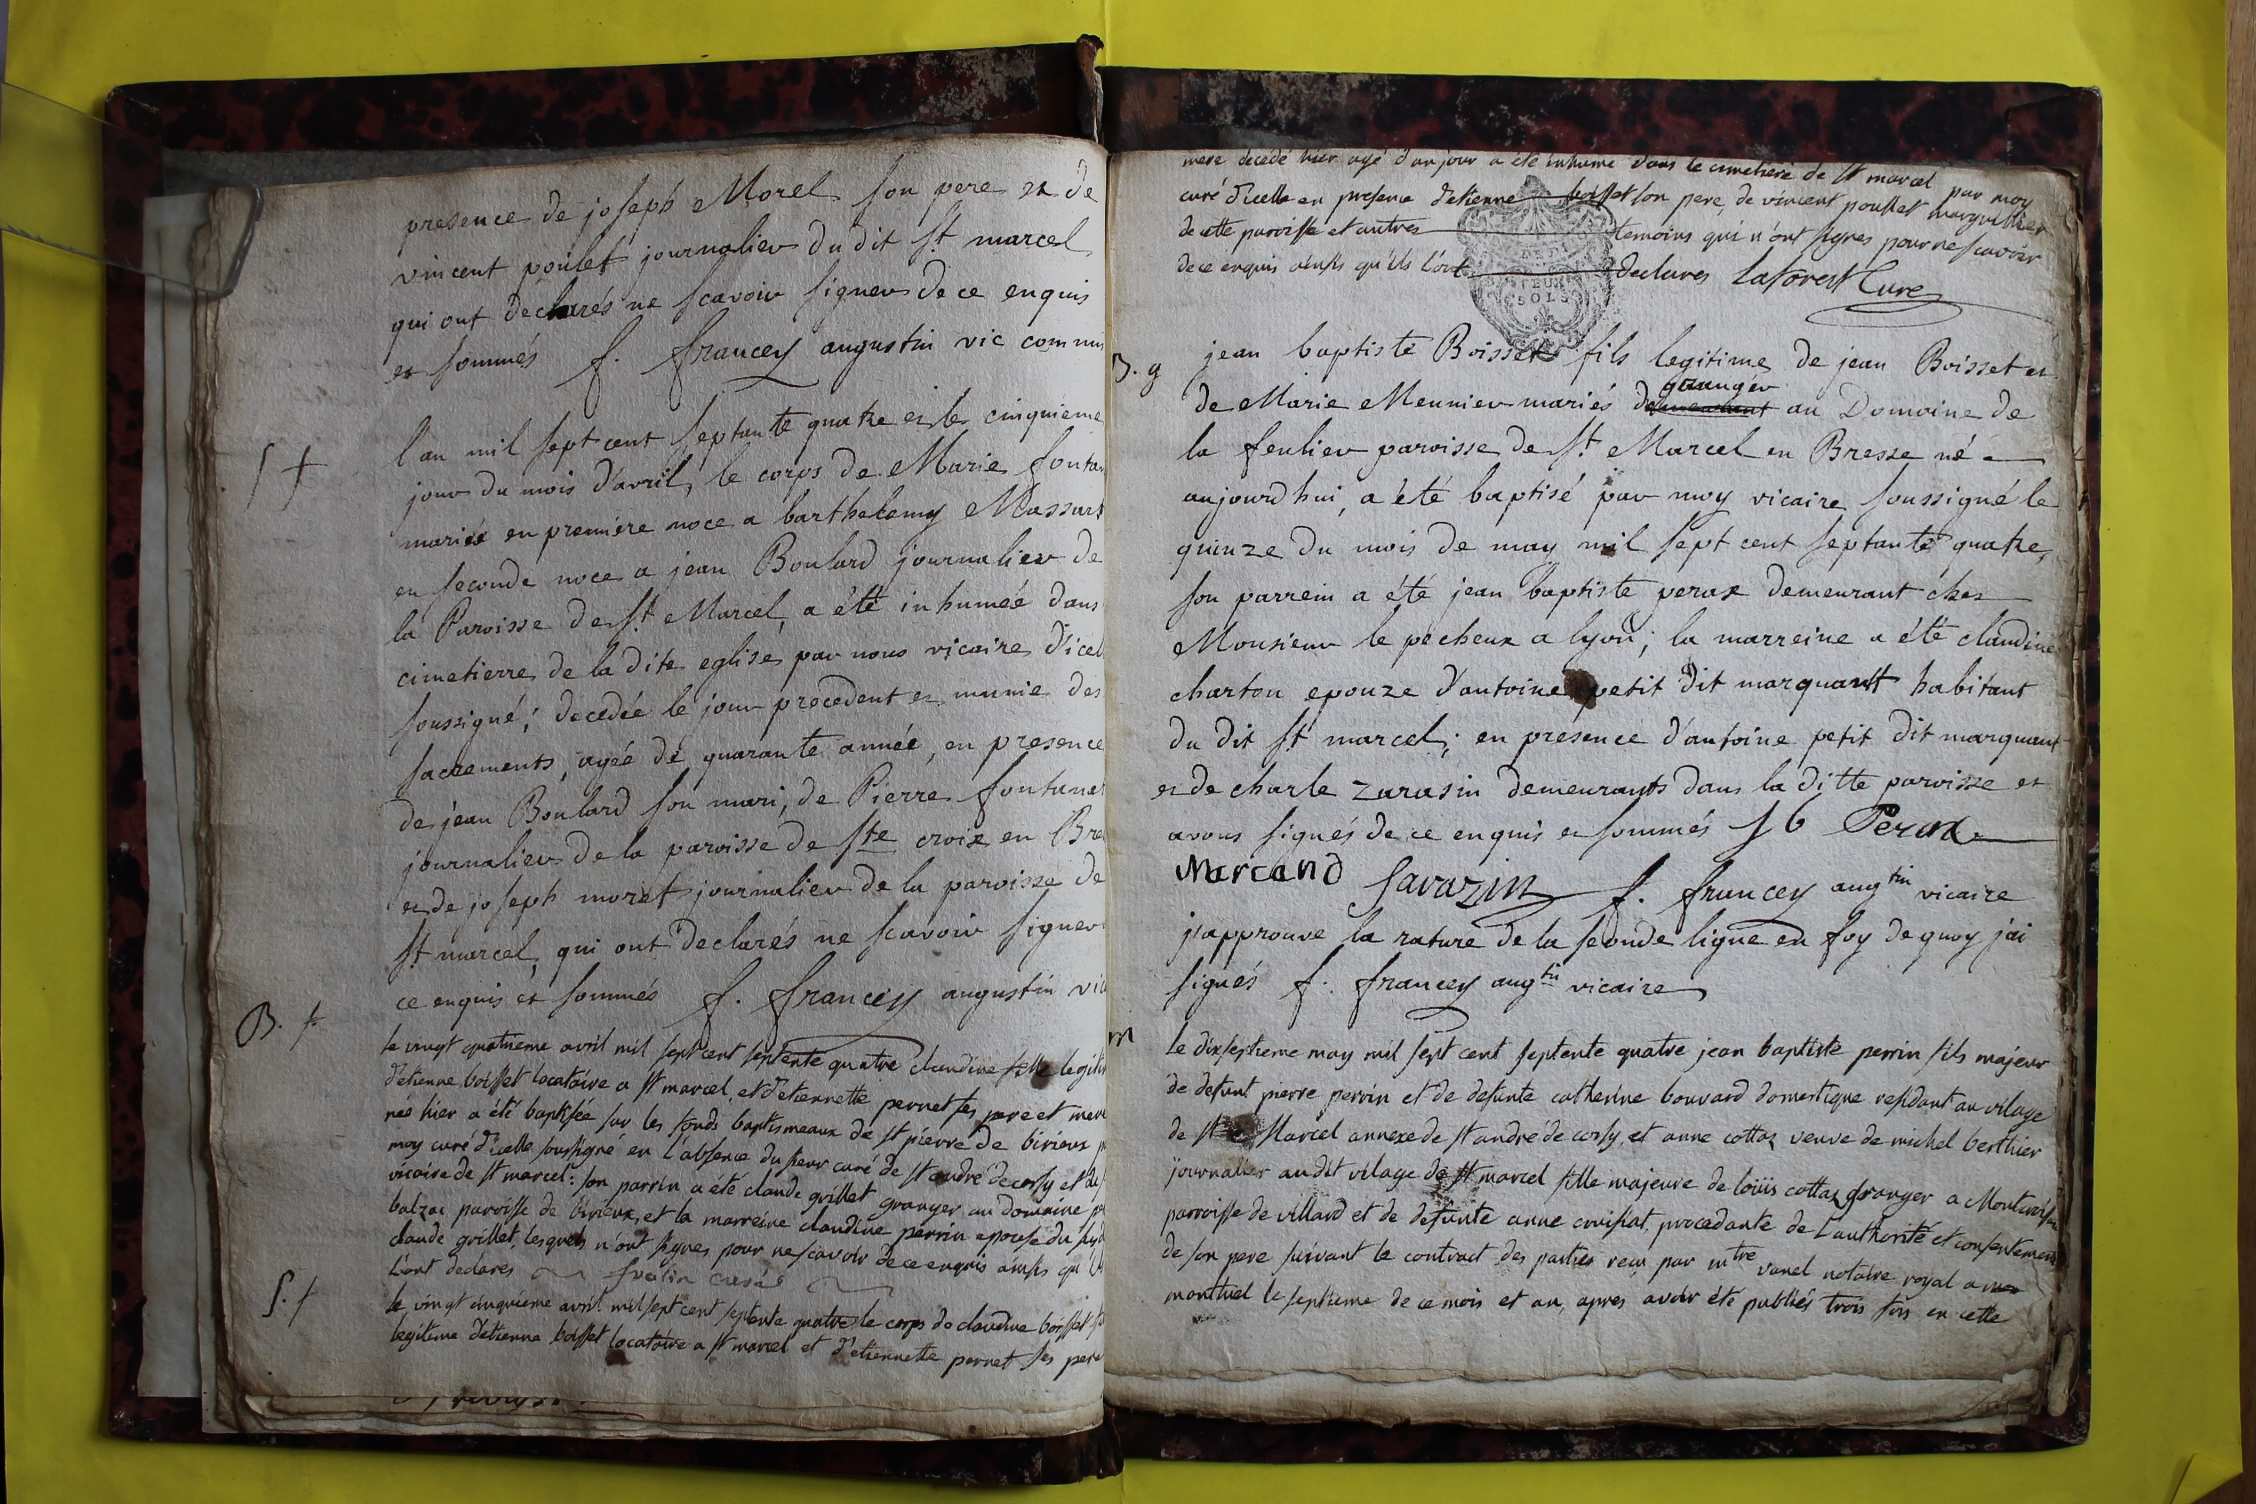 presence de joseph Morel son pere et de
vincent poulet journalier du dit St marcel
qui ont declarés ne scavoir signer de ce enquis
et sommés f. francey augustin vic commis
S +
l'an mil sept cent septante quatre et le cinquieme
jour du mois d'avril, le corps de Marie fontan
mariée en premiere noce a barthelemy Massart
en seconde noce a jean Boulard journalier de
la Paroisse de St Marcel, a été inhumée dans
cimetierre de la dite eglise par nous vicaire d'icel
soussigné; decedée le jour precedent et munie des
sacrements, agée de quarante année, en presence
de jean Boulard son mari, de Pierre fontanet
journalier de la paroisse de Ste croix en Bre
et de joseph morel journalier de la paroisse de
St marcel, qui ont declarés ne scavoir signer
ce enquis et sommés f. francey augustin vic
B. f.
le vingt quatrieme avril mil sept cent septente quatre claudine fille legitim
d'etienne boisset locatoire a st marcel, et d'etiennette pernet ses pere et mere
née hier a été baptisée sur les fonds baptismeaux de st pierre de birieux p
moy curé d'icelle soussigné en l'absence du sieur curé de st andré de corsy et du s
vicaire de st marcel: son parrin a été claude grillet granger au domaine
balzac paroisse de birieux, et la marreine claudine perrin epouse du
claude grillet, lesquels n'ont signes pour ne scavoir de ce enquis ainsis qu'ils
l'ont declares curé
S. f
le vingt cinquieme avril mil sept cent septente quatre le corps de claudine boisset
legitime d'etienne boisset locatoire a st marcel et d'etiennette pernet ses pere
mere decedé hier agé d'un jour a été inhumé dans le cimetiere de st marcel par moy
curé d'icelle en presence d'etienne boisset son pere, de vincent poullet marguillier
de cette paroisse et autres temoins qui n'ont signes pour ne scavoir
de ce enquis ainsis qu'ils l'ont declares Laforest Curé
DEUX
SOLS
B. g
jean baptiste Boisset fils legitime de jean Boisset et
granger
de Marie Meunier mariés demeurant au Domaine de
la feulier paroisse de St Marcel en Bresse né
aujourd'hui, a été baptisé par moy vicaire soussigné le
quinze du mois de may mil sept cent septante quatre,
son parrein a été jean baptiste perax demeurant chez
Monsieur le pecheux a lyon; la marreine a été claudine
charton epouze d'antoine petit dit marquant habitant
du dit St marcel; en presence d'antoine petit dit marquant
et de charle zarasin demeurants dans la ditte paroisse et
avons signés de ce enquis et sommés J b Perax
Marcand Sarazin f. francey augtin vicaire
j'approuve la rature de la seconde ligne en foy de quoy j'ai
signés f. francey augtin vicaire
m
Le dixseptieme may mil sept cent septente quatre jean baptiste perrin fils majeur
de defunt pierre perrin et de defunte catherine bouvard domestique residant au vilage
de st Marcel annexe de st andré de corsy, et anne cottaz veuve de michel berthier
journalier au dit vilage de st marcel fille majeure de loüis cottaz granger a
parroisse de villard et de defunte anne cruisiat, procedante de L'authorité et consentement
de son pere suivant le contract des parties reçu par mtre vanel notaire royal a
montluel le septieme de ce mois et an, apres avoir été publiés trois fois en cette